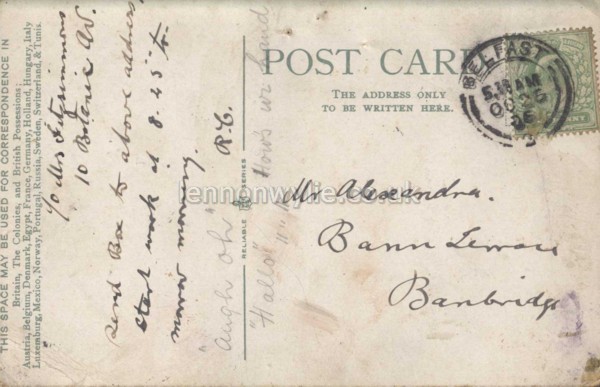 THIS SPACE MAY BE USED FOR CORRESPONDENCE IN
Britain, The Colonies, and British Possessions;
Austria, Belgium, Denmark, Egypt, France, Germany, Holland, Hungary, Italy
Luxemburg, Mexico, Norway, Portugal, Russia, Sweden, Switzerland, & Tunis.
c/o Mrs Fitzsimmons
10 Botanic Av.
Send Box to above address
start work at 8.45 to
morrow morning.
R.C.
"Augh oh"
"Hallo" "
RELIABLE SERIES
POST CARD
THE ADDRESS ONLY
TO BE WRITTEN HERE.
BELFAST
5.15 AM
OC 26
Mr Alexandra.
Bann
Banbridge
lennonwylie.co.uk